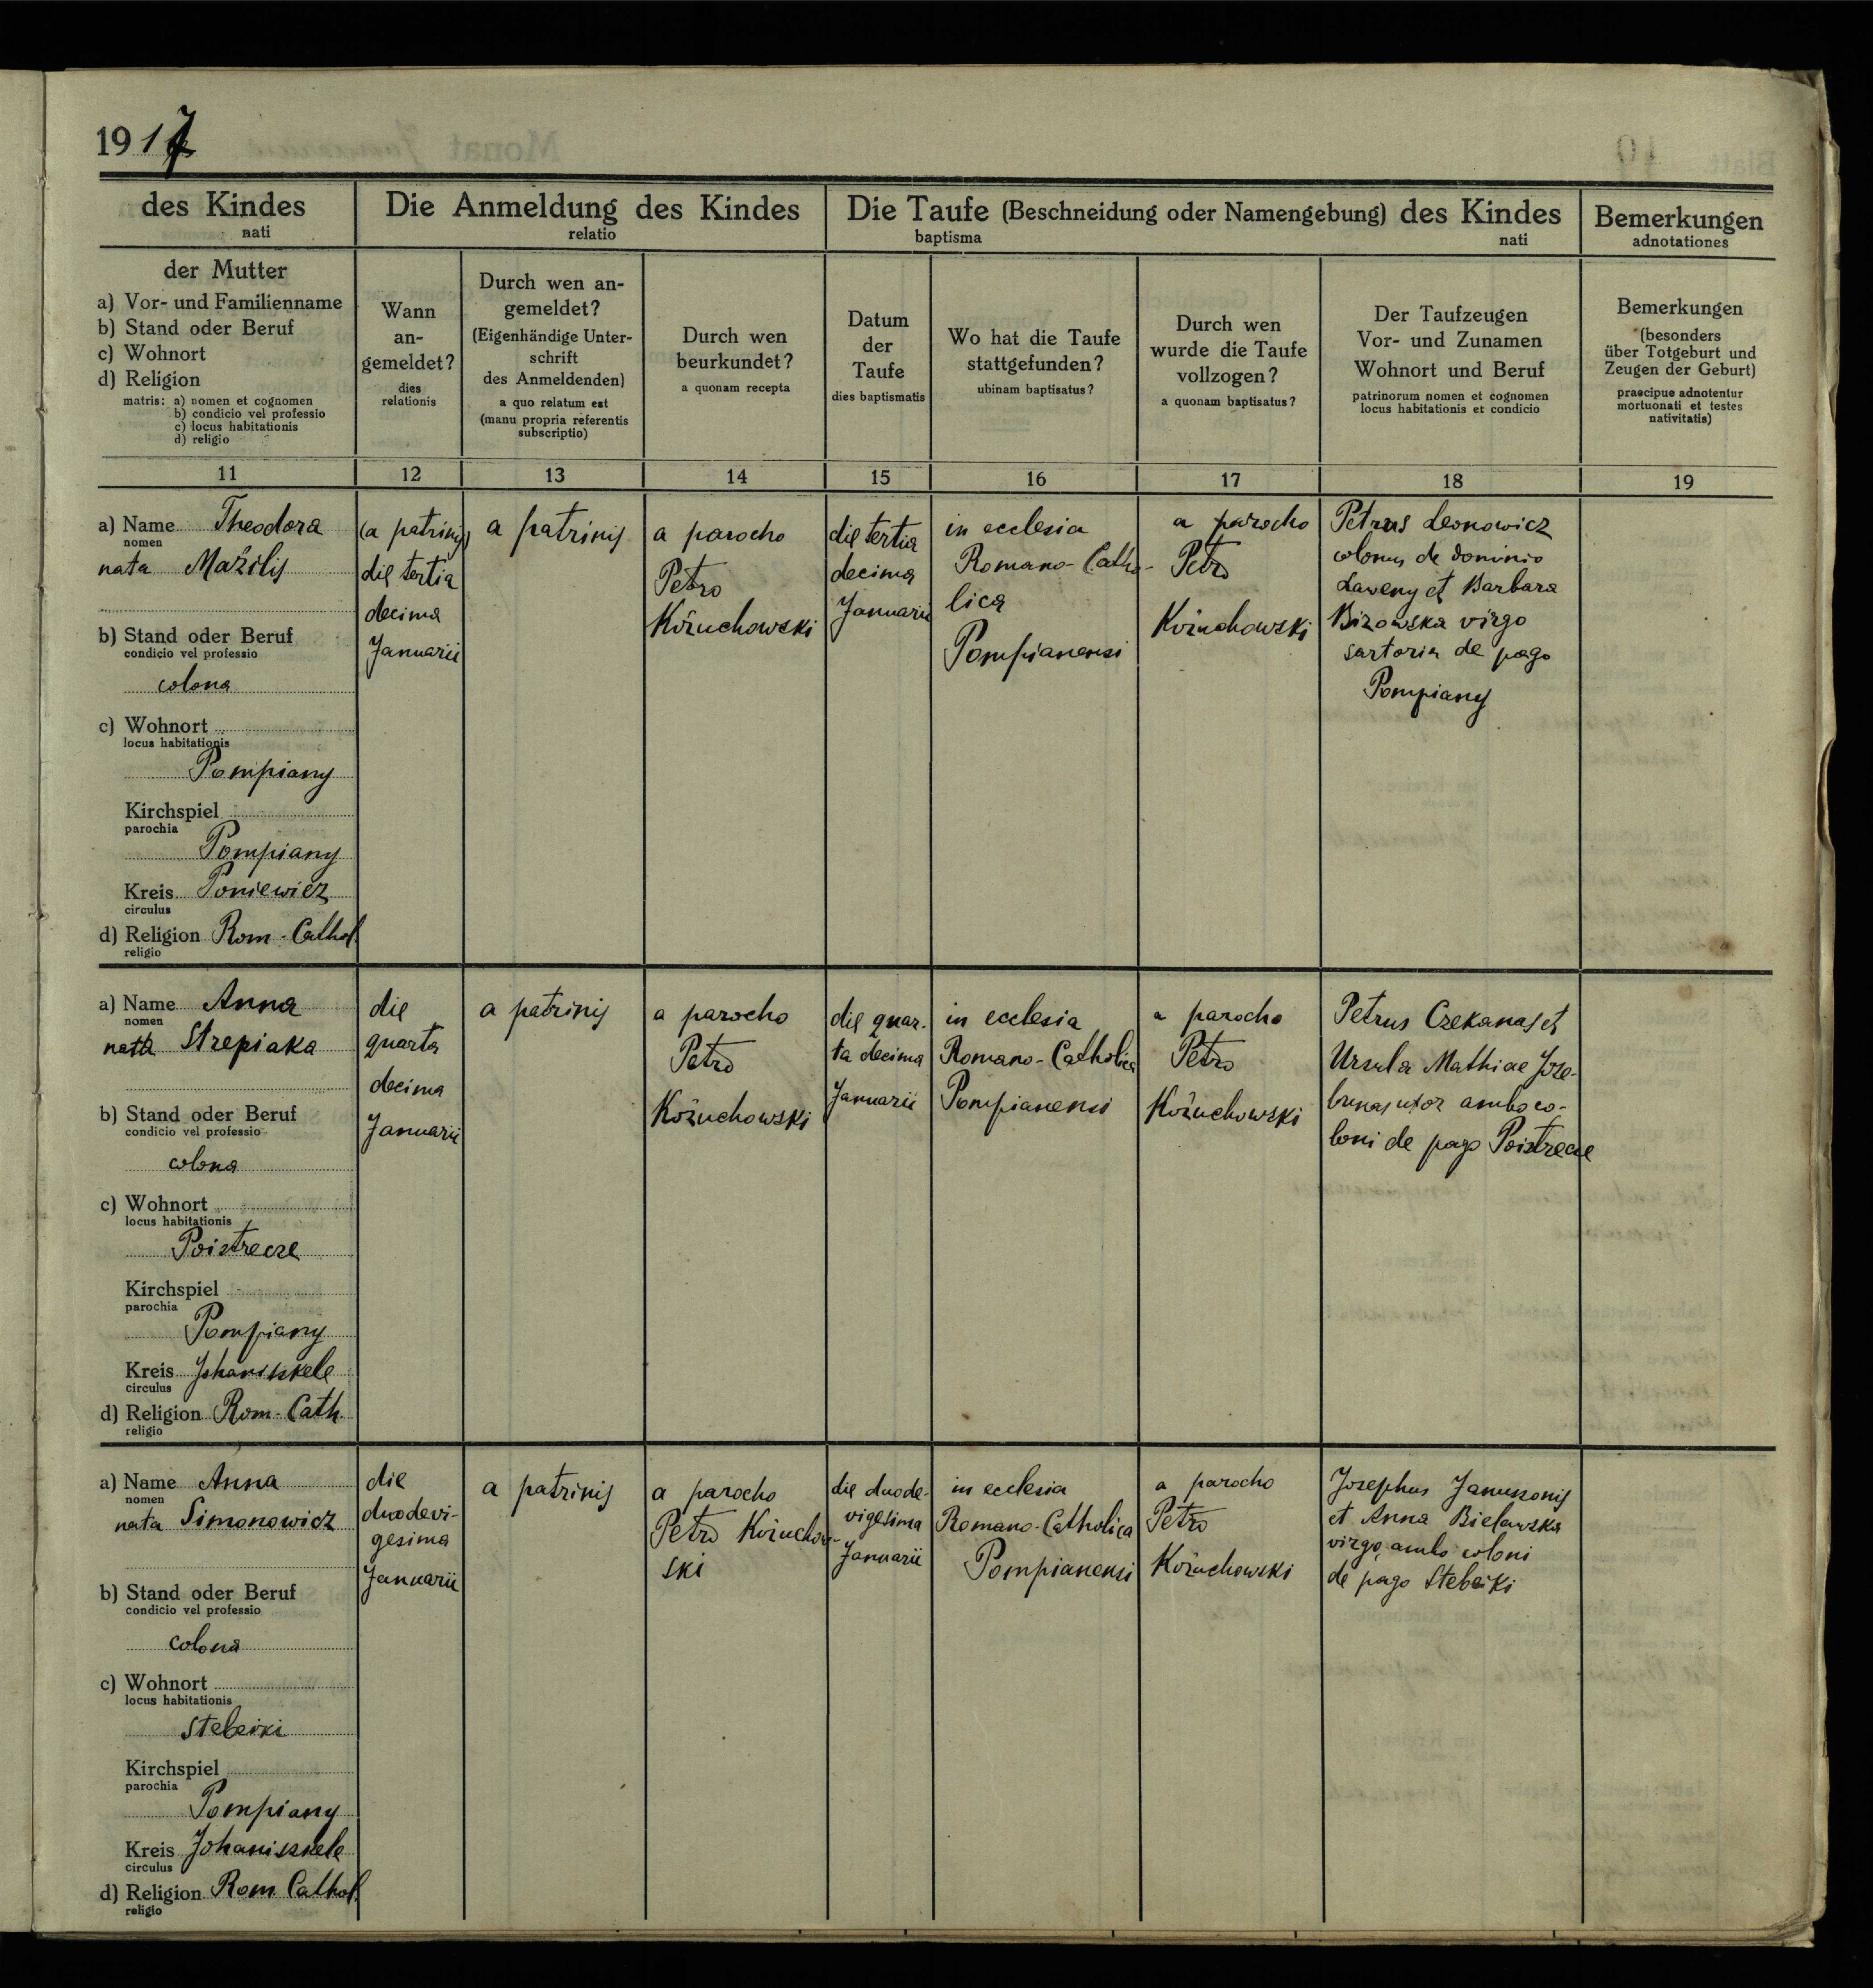 1917
des Kindes
nati
Die Anmeldung des Kindes
relatio
Die Taufe (Beschneidung oder Namengebung) des Kindes
baptisma nati
Bemerkungen
adnotationes
der Mutter
a) Vor- und Familienname
b) Stand oder Beruf
c) Wohnort
d) Religion
matris: a) nomen et cognomen
b) condicio vel professio
c) locus habitationis
d) religio
Wann
an-
gemeldet?
dies
relationis
Durch wen an-
gemeldet?
(Eigenhändige Unter-
schrift
des Anmeldenden)
a quo relatum est
(manu propria referentis
subscriptio)
Durch wen
beurkundet?
a quonam recepta
Datum
der
Taufe
dies baptismatis
Wo hat die Taufe
stattgefunden?
ubinam baptisatus?
Durch wen
wurde die Taufe
vollzogen?
a quonam baptisatus?
Der Taufzeugen
Vor- und Zunamen
Wohnort und Beruf
patrinorum nomen et cognomen
locus habitationis et condicio
Bemerkungen
(besonders
über Totgeburt und
Zeugen der Geburt)
praecipue adnotentur
mortuonati et testes
nativitatis)
11 12 13 14 15 16 17 18 19
a) Name Theodora
nomen
nata Mażilis
b) Stand oder Beruf
condicio vel professio
colona
c) Wohnort
locus habitationis
Pompiany
Kirchspiel
parochia
Pompiany
Kreis Poniewicz
circulus
d) Religion Rom-Cathol.
religio
(a patrinis)
die tertia
decima
Januarii
a patrinis
a parocho
Petro
Kożuchowski
die tertia
decima
Januarii
in ecclesia
Romano-Catho-
lica
Pompianensi
a parocho
Petro
Kożuchowski
Petrus Leonowicz
colonus de dominio
Laweny et Barbara
Bizowska virgo
sartoria de pago
Pompiany
a) Name Anna
nomen
nata Strepiaka
b) Stand oder Beruf
condicio vel professio
colona
c) Wohnort
locus habitationis
Poistrecze
Kirchspiel
parochia
Pompiany
Kreis Johaniszkele
circulus
d) Religion Rom-Cath.
religio
die
quarta
decima
Januarii
a patrinis
a parocho
Petro
Kożuchowski
die quar-
ta decima
Januarii
in ecclesia
Romano-Catholica
Pompianensi
a parocho
Petro
Kożuchowski
Petrus Czekanas et
Ursula Mathiae
uxor ambo co-
loni de pago Poistrecze
a) Name Anna
nomen
nata Simonowicz
b) Stand oder Beruf
condicio vel professio
colona
c) Wohnort
locus habitationis
Stebeiki
Kirchspiel
parochia
Pompiany
Kreis Johaniszkele
circulus
d) Religion Rom. Cathol.
religio
die
duodevi-
gesima
Januarii
a patrinis
a parocho
Petro Kożuchow-
ski
die duode-
vigesima
Januarii
in ecclesia
Romano-Catholica
Pompianensi
a parocho
Petro
Kożuchowski
Josephus Januszonis
et Anna Bielawska
virgo, ambo coloni
de pago Stebeiki